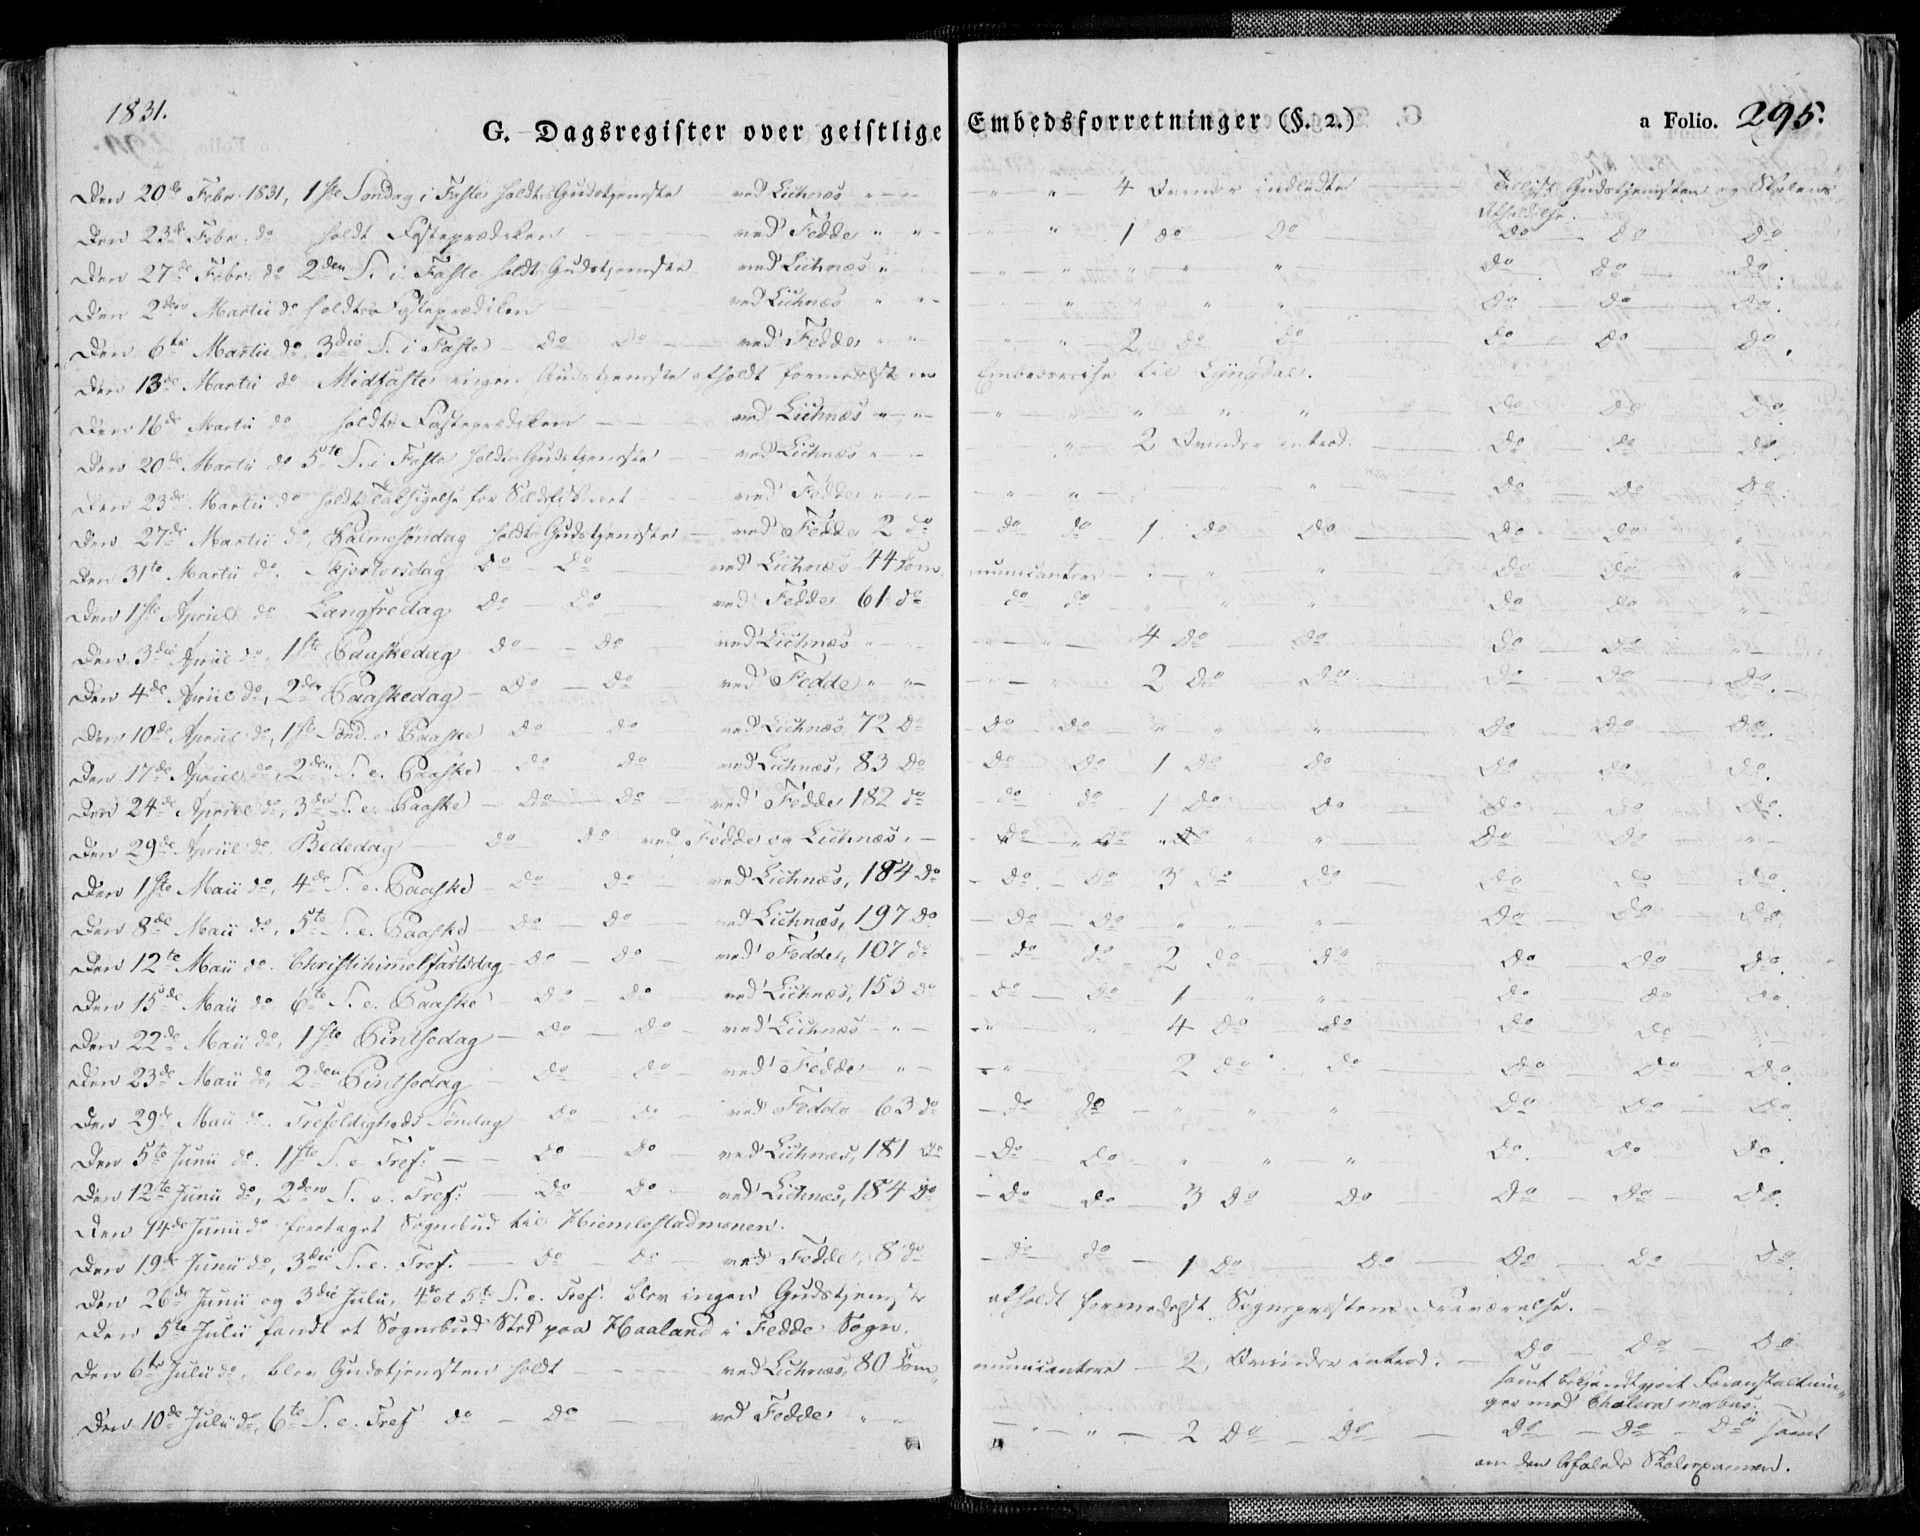 1831.
G. Dagsregister over geistlige Embedsforretninger (§. 2.) a Folio. 295.
Den 20de Febr. 1831, 1ste Søndag i Faste holdt Gudstjeneste ved Lichnæs " — " " 4 Qvinder indledte — Tilligst Gudstjenesten og Skolens
Afholdelse.
Den 23de Febr. do holdt Fasteprædiken — ved Fedde " " " 1 do do — do — do do
Den 27de Febr. do 2den S. i Faste holdt Gudstjeneste ved Lichnæs " — " " " " do do do.
Den 2den Martii do holdt Fasteprædiken ved Lichnæs " " " " " do — do — do.
Den 6te Martii do, 3die S. i Faste — do do — ved Fedde " " " 2 do do do — do — do.
Den 13de Martii do Midfaste ingen Gudstjeneste afholdt formedelst en Embedsreise til Lyngdal.
Den 16de Martii do holdt Fasteprædiken — ved Lichnæs " " " " " do do do
Den 20de Martii do 5te S. i Faste holdt Gudstjeneste — ved Lichnæs " — " 2 Qvinder introd. — do do do.
Den 23de Martii do holdt Taksigelse for Sildefiskeriet — ved Fedde " — " " " do — do — do.
Den 27de Martii do, Palmesøndag holdt Gudstjeneste — ved Fedde 2 do — do do 1 do do — do — do "
Den 31te Martii do. Skjertorsdag do — do — ved Lichnæs 44 Communicantere — " " " do — do — "
Den 1ste April do Langfredag do do ved Fedde 61 do do do " " " do do "
Den 3die April do, 1ste Paaskedag do — do ved Lichnæs " — " 4 do do do — do — "
Den 4de April do, 2den Paaskedag — do — do ved Fedde " " — " 2 do — do — do — do — do. —
Den 10de April do, 1ste Sønd. e. Paaske do do ved Lichnæs 72 do do — do " " " do — do — do.
Den 17de April do, 2den S. e. Paaske — do do ved Lichnæs, 83 do do do 1 do do do do do.
Den 24de April do, 3die S. e. Paaske — do — do — ved Fedde 182 do — do do 1 do do — do — do do.
Den 29de April do. Bededag — do do ved Fedde og Lichnæs. — do " do " do " " do — do — "
Den 1ste Maii do, 4de S. e. Paaske — do do ved Lichnæs, 184 do — do. — do 3 do do — do — do — do.
Den 8de Maii do, 5te S. e. Paaske — do — do ved Lichnæs, 197 do — do — do " " " do — do — do
Den 12te Maii do. Christihimmelfartsdag — do — do — ved Fedde, 107 do — do do 2 do do — do — do — do.
Den 15de Maii do 6te S. e. Paaske do do ved Lichnæs, 153 do — do — do 1 " " — do do do.
Den 22de Maii do, 1ste Pintsedag — do — do — ved Lichnæs — " " " 4 do do do do "
Den 23de Maii do, 2den Pintsedag — do do — ved Fedde — " — " " 2 do do — do — do — do.
Den 29de Maii do. Trefoldigheds Søndag do — do — ved Fedde 63 do — do do — " " " do — do — do
Den 5te Junii do. 1ste S. e. Tref: — do — do — ved Lichnæs, 181 do — do — do — " " " do. do do.
Den 12te Junii do, 2den S. e. Tref: — do do — ved Lichnæs, 184 do — do do — 3 do do — do — do — do.
Den 14de Junii do foretaget Sognebud til Hiemlestadmonen.
Den 19de Junii do, 3die S. e. Tref. — do — do — ved Fedde, 8 do — do do — 1 do do — do — do do.
Den 26de Junii og 3die Julii, 4de et 5te S. e. Tref. blev ingen Gudstjeneste afholdt formedelst Sognepræstens Fraværelse.
Den 5te Julii fandt et Sognebud Sted paa Haaland i Fedde Sogn.
Den 6te Julii do, blev Gudstjenesten holdt — ved Lichnæs, 80 Communicantere — 2, Qvinder introd. — do — do — do
samt bekjendtgjort Foranstaltninger mod Cholera morbus. —
Den 10de Julii do, 6te S. e. Tref do — do — ved Fedde " " — " " — 2 do — do — do — do — do samt
om den befalede Skoleexamen.